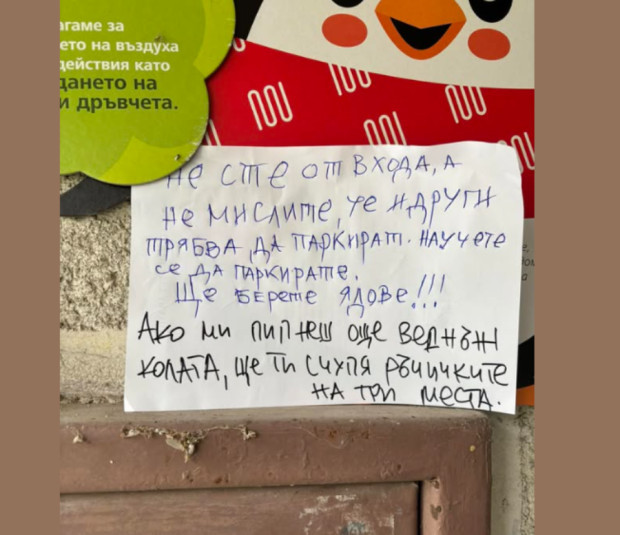 агаме за
ето на въздуха
действия като
дането на
и дръвчета.
не сте от входа, а
не мислите, че и други
трябва да паркират. Научете
се да паркирате.
Ще берете ядове!!!
Ако ми пипнеш още веднъж
колата, ще ти счупя ръчичките
на три места.